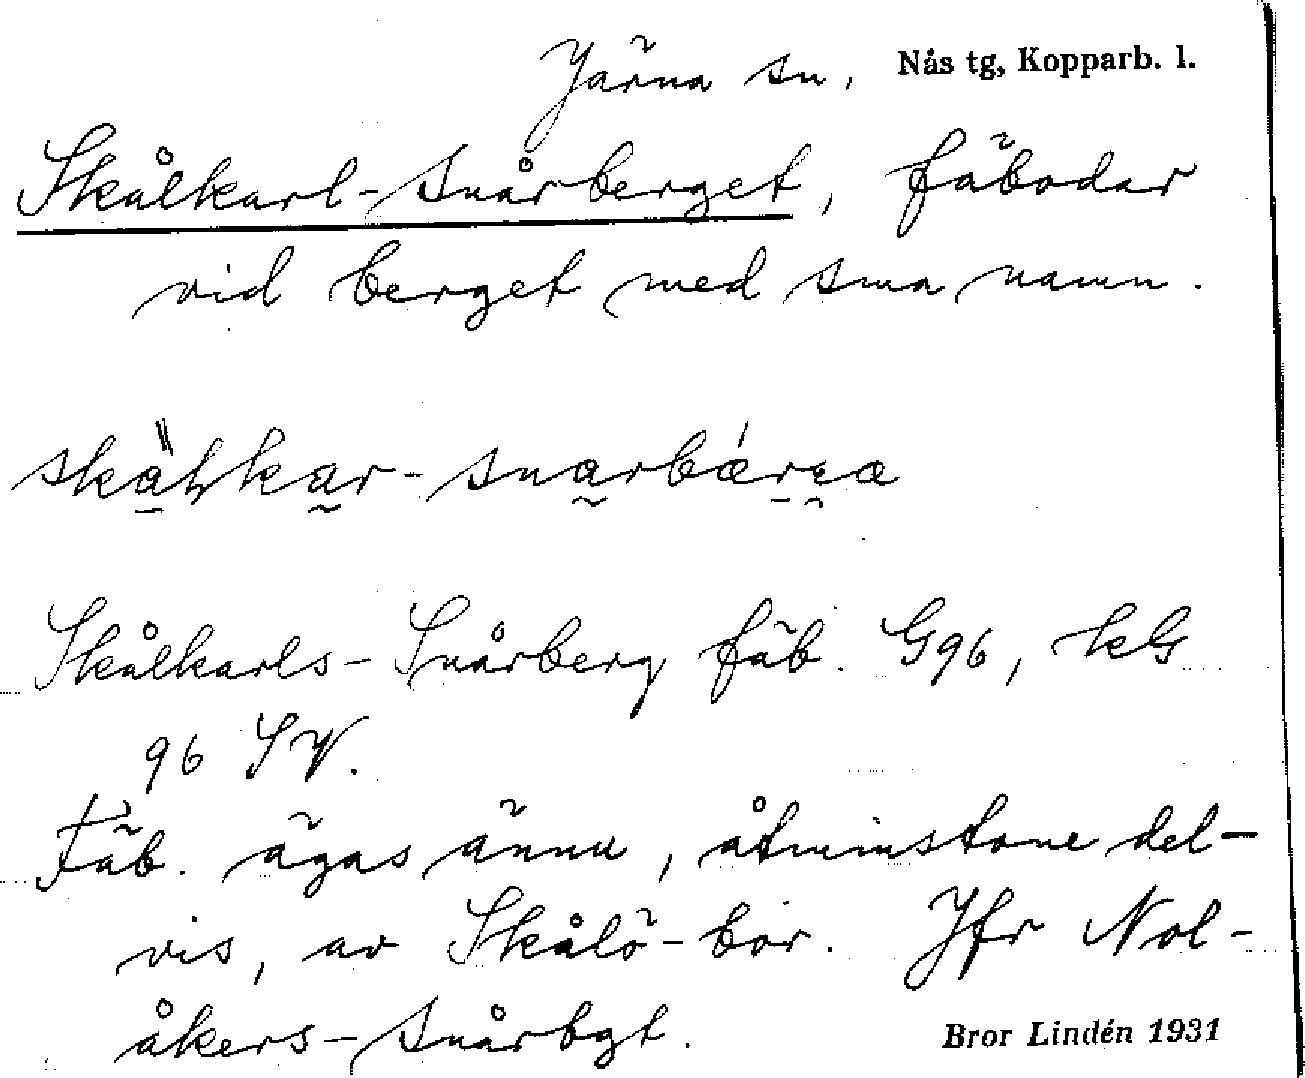 Järna sn, Nås tg, Kopparb. l.
Skålkarl-Snårberget, fäbodar
vid berget med sma namn.
Skålkarls-Snårberg fäb. G96, kG
96 SV.
Fäb. ägas ännu, åtminstone del-
vis, av Skålö-bor. Jfr Nol-
åkers-Snårbgt.
Bror Lindén 1931